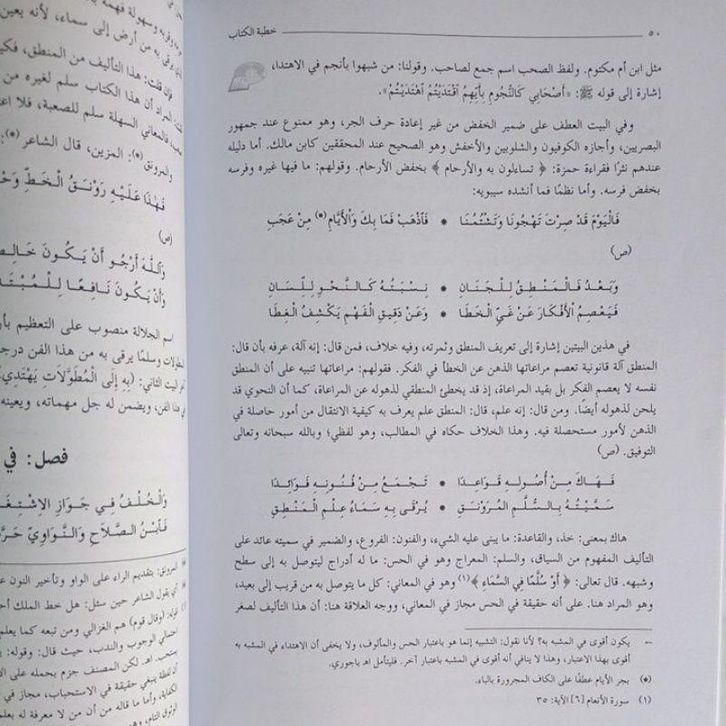 ٥٠
خطبة الكتاب
مثل ابن أم مكتوم. ولفظ الصحب اسم جمع لصاحب. وقولنا: من شبهوا بأنجم في الاهتدا،
إشارة إلى قوله ﷺ: «أَصْحَابِي كَالنُّجُومِ بِأَيِّهِمُ اقْتَدَيْتُمُ اهْتَدَيْتُمْ».
وفي البيت العطف على ضمير الخفض من غير إعادة حرف الجر، وهو ممنوع عند جمهور
البصريين، وأجازه الكوفيون والشلوبين والأخفش وهو الصحيح عند المحققين كابن مالك. أما دليله
عندهم نثرًا فقراءة حمزة: ﴿ تساءلون به والأرحام ﴾ بخفض الأرحام. وقولهم: ما فيها غيره وفرسه
بخفض فرسه. وأما نظمًا فما أنشده سيبويه:
فَالْيَوْمَ قَدْ صِرْتَ تَهْجُونَا وَتَشْتُمُنَا * فَاذْهَبْ فَمَا بِكَ وَالْأَيَّامِ(*) مِنْ عَجَبِ
(ص)
وَبَعْدُ فَالْمَنْطِقُ لِلْجَنَانِ * نِسْبَتُهُ كَالنَّحْوِ لِلِّسَانِ
فَيَعْصِمُ الْأَفْكَارَ عَنْ غَيِّ الْخَطَا * وَعَنْ دَقِيقِ الْفَهْمِ يَكْشِفُ الْغِطَا
في هذين البيتين إشارة إلى تعريف المنطق وثمرته، وفيه خلاف، فمن قال: إنه آلة، عرفه بأن قال:
المنطق آلة قانونية تعصم مراعاتها الذهن عن الخطأ في الفكر. فقولهم: مراعاتها تنبيه على أن المنطق
نفسه لا يعصم الفكر بل بقيد المراعاة، إذ قد يخطئ المنطقي لذهوله عن المراعاة، كما أن النحوي قد
يلحن لذهوله أيضًا. ومن قال: إنه علم، قال: المنطق علم يعرف به كيفية الانتقال من أمور حاصلة في
الذهن لأمور مستحصلة فيه. وهذا الخلاف حكاه في المطالب، وهو لفظي؛ وبالله سبحانه وتعالى
التوفيق. (ص)
فَهَاكَ مِنْ أُصُولِهِ قَوَاعِدَا * تَجْمَعُ مِنْ فُنُونِهِ فَوَائِدَا
سَمَّيْتُهُ بِالسُّلَّمِ الْمُرَوْنَقِ * يُرْقَى بِهِ سَمَاءُ عِلْمِ الْمَنْطِقِ
هاك بمعنى: خذ، والقاعدة: ما يبنى عليه الشيء، والفنون: الفروع، والضمير في سميته عائد على
التأليف المفهوم من السياق، والسلم: المعراج وهو في الحس: ما له أدراج ليتوصل به إلى سطح
وشبهه. قال تعالى: ﴿ أَوْ سُلَّمًا فِي السَّمَاءِ ﴾(١) وهو في المعاني: كل ما يتوصل به من قريب إلى بعيد،
وهو المراد هنا. على أنه حقيقة في الحس مجاز في المعاني، ووجه العلاقة هنا: أن هذا التأليف لصغر
يكون أقوى في المشبه به؟ لأنا نقول: التشبيه إنما هو باعتبار الحس والمألوف، ولا يخفى أن الاهتداء في المشبه به
أقوى بهذا الاعتبار، وهذا لا ينافي أنه أقوى في المشبه باعتبار آخر. فليتأمل اهـ باجوري.
(*) بجر الأيام عطفًا على الكاف المجرورة بالباء.
(١) سورة الأنعام [٦] الآية: ٣٥
وقربه وسهولة فهمه
يرقى به من أرض إلى سماء، لأنه يعين
فإن قلت: هذا التأليف من المنطق، فكيف
المراد أن هذا الكتاب سلم لغيره من
فالمعاني السهلة سلم للصعبة، فلا
والمرونق(*): المزين، قال الشاعر(*):
فَهٰذَا عَلَيْهِ رَوْنَقُ الْخَطِّ
(ص)
وَاللَّهَ أَرْجُو أَنْ يَكُونَ
وَأَنْ يَكُونَ نَافِعًا لِلْمُبْتَدِي
اسم الجلالة منصوب على التعظيم
وسلمًا يرقى به من هذا الفن
البيت الثاني: (بِهِ إِلَى الْمُطَوَّلَاتِ يَهْتَدِي
الفن، ويضمن له جل مهماته، ويعينه
فصل: في
وَالْخُلْفُ فِي جَوَازِ الِاشْتِغَالِ
فَابْنُ الصَّلَاحِ وَالنَّوَاوِيُّ
(*) المرونق: بتقديم الراء على الواو وتأخير النون